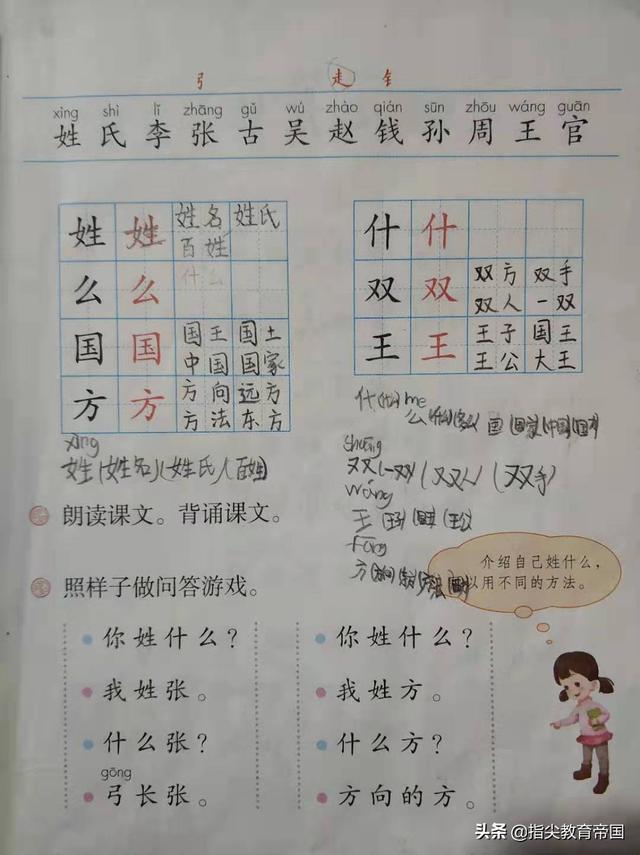 弓 走 钅
xìng shì lǐ zhāng gǔ wú zhào qián sūn zhōu wáng guān
姓 氏 李 张 古 吴 赵 钱 孙 周 王 官
姓 姓 姓名 姓氏
百姓
么 么 什么
国 国 国王 国土
中国 国家
方 方 方向 远方
方法 东方
什 什
双 双 双方 双手
双人 一双
王 王 王子 国王
王公 大王
什(什么) me
么(什么)(多么) 国(国家)(中国)(国王)
xìng
姓(姓名)(姓氏)(百姓)
shuāng
双(一双)(双人)(双手)
wáng
王(王子)(国王)(王公)
fāng
方
朗读课文。背诵课文。
照样子做问答游戏。
介绍自己姓什么，
以用不同的方法。
你姓什么？
我姓张。
什么张？
gōng
弓长张。
你姓什么？
我姓方。
什么方？
方向的方。
头条 @指尖教育帝国